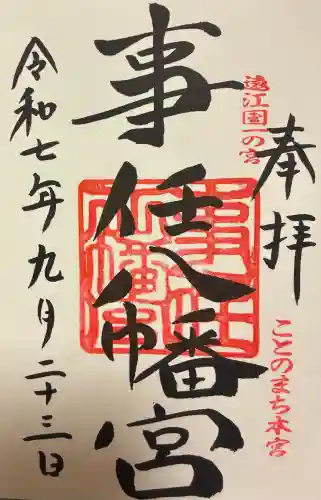 奉拝
遠江国一の宮
ことのまち本宮
事任八幡宮
事任八幡宮
令和七年九月二十三日